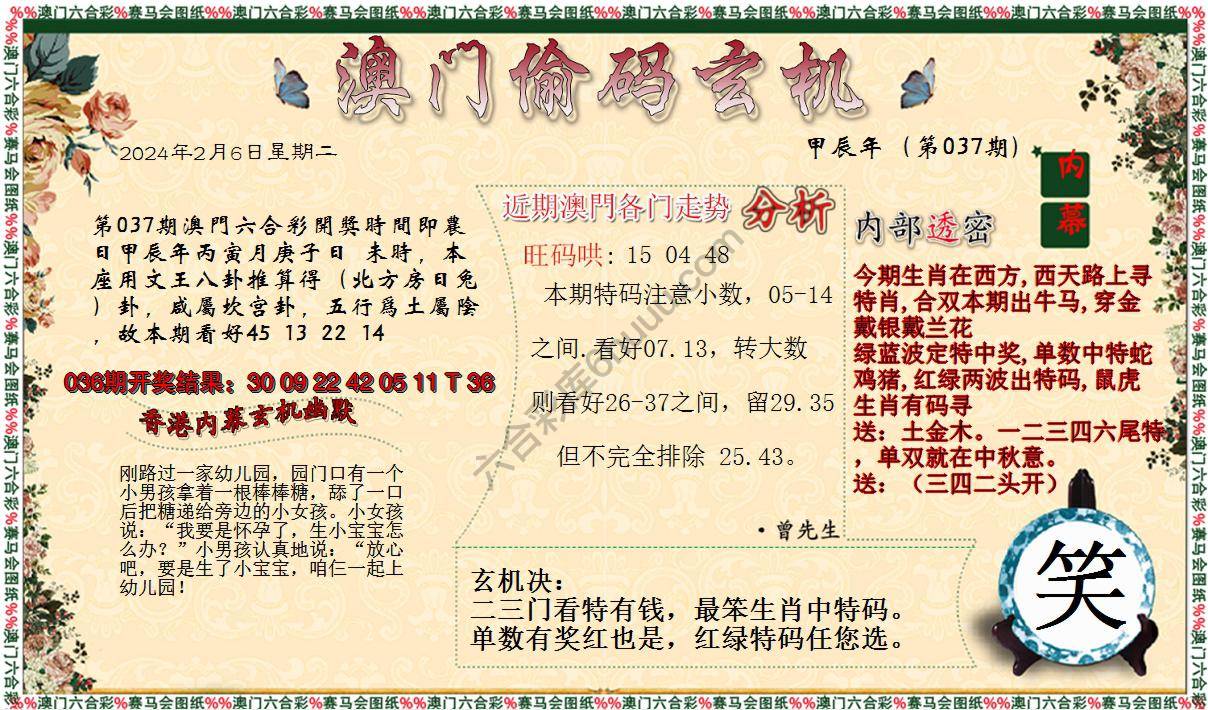 %%澳门六合彩%赛马会图纸%%澳门六合彩%赛马会图纸%%澳门六合彩%赛马会图纸%%澳门六合彩%赛马会图纸%%澳门六合彩%赛马会图纸%%澳门六合彩%赛马会图纸%%
澳门偷码玄机
2024年2月6日星期二
甲辰年（第037期）
内
幕
第037期澳門六合彩開獎時間即農
日甲辰年丙寅月庚子日 未時，本
座用文王八卦推算得（北方房日兔
）卦，咸屬坎宫卦，五行爲土屬陰
，故本期看好45 13 22 14
036期开奖结果：30 09 22 42 05 11 T 36
香港内幕玄机幽默
刚路过一家幼儿园，园门口有一个
小男孩拿着一根棒棒糖，舔了一口
后把糖递给旁边的小女孩。小女孩
说：“我要是怀孕了，生小宝宝怎
么办？”小男孩认真地说：“放心
吧，要是生了小宝宝，咱仨一起上
幼儿园！
近期澳門各门走势 分析
旺码哄: 15 04 48
本期特码注意小数，05-14
之间.看好07.13，转大数
则看好26-37之间，留29.35
但不完全排除 25.43。
·曾先生
内部透密
今期生肖在西方,西天路上寻
特肖,合双本期出牛马,穿金
戴银戴兰花
绿蓝波定特中奖,单数中特蛇
鸡猪,红绿两波出特码,鼠虎
生肖有码寻
送：土金木。一二三四六尾特
，单双就在中秋意。
送：（三四二头开）
玄机决：
二三门看特有钱，最笨生肖中特码。
单数有奖红也是，红绿特码任您选。
笑
%%澳门六合彩%赛马会图纸%%澳门六合彩%赛马会图纸%%澳门六合彩%赛马会图纸%%澳门六合彩%赛马会图纸%%澳门六合彩%赛马会图纸%%澳门六合彩%赛马会图纸%%